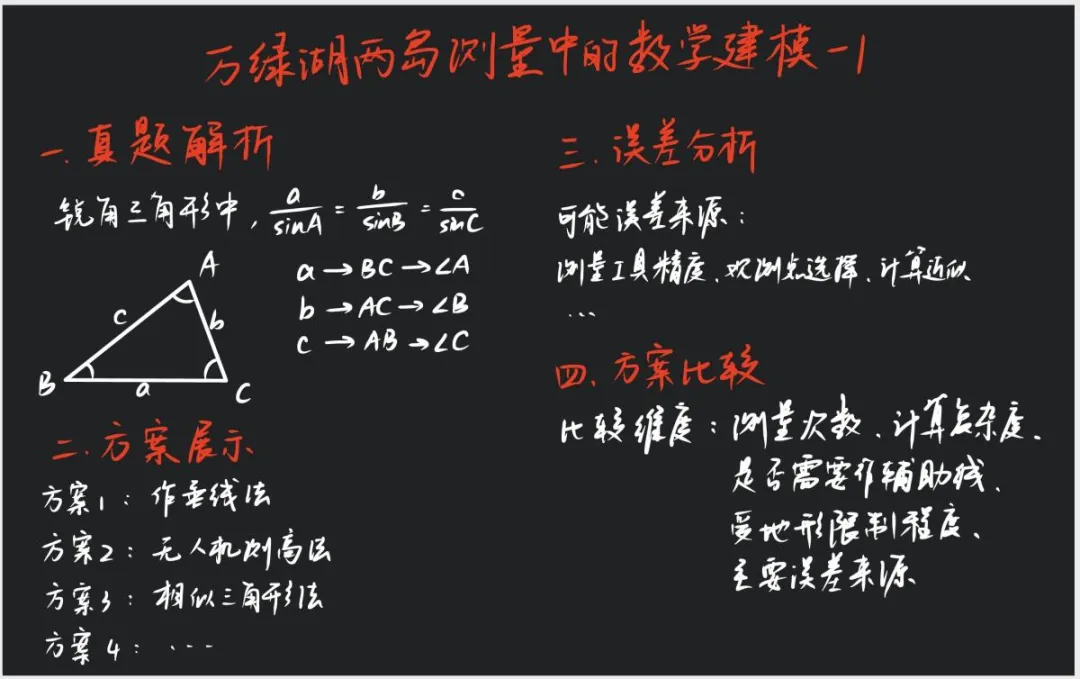 万绿湖两岛测量中的数学建模-1
一.真题解析
锐角三角形中, a/sinA = b/sinB = c/sinC
a→BC→∠A
b→AC→∠B
c→AB→∠C
A
c
b
B
a
C
二.方案展示
方案1：作垂线法
方案2：无人机测高法
方案3：相似三角形法
方案4：...
三.误差分析
可能误差来源：
测量工具精度、观测点选择、计算近似
...
四、方案比较
比较维度：测量次数、计算复杂度、
是否需要作辅助线、
受地形限制程度、
主要误差来源